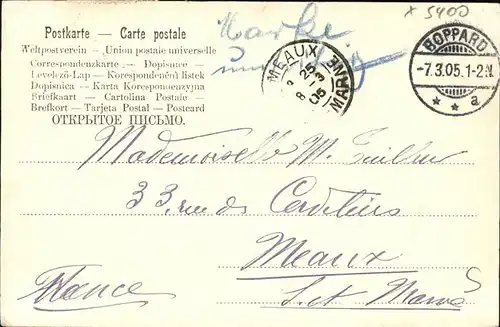 Postkarte — Carte postale
Weltpostverein — Union postale universelle
Correspondenzkarte — Dopisnice —
Levelező-Lap — Korespondenční lístek
Dopisnica — Karta Korespondenzyjna
Briefkaart — Cartolina Postale —
Brefkort — Tarjeta Postal — Postcard
ОТКРЫТОЕ ПИСЬМО.
Marke
x 5400
MEAUX
MARNE
BOPPARD
-7.3.05.1-2.N.
* * a
Mademoiselle M.
33, rue des Cordeliers
Meaux
France
S. et Marne